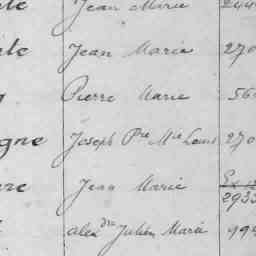 Jean Marie 244
Jean Marie 270
Pierre Marie 56
gne Joseph Pre Mie Louis 270
Jean Marie
2933
alexdre Julien Marie 499